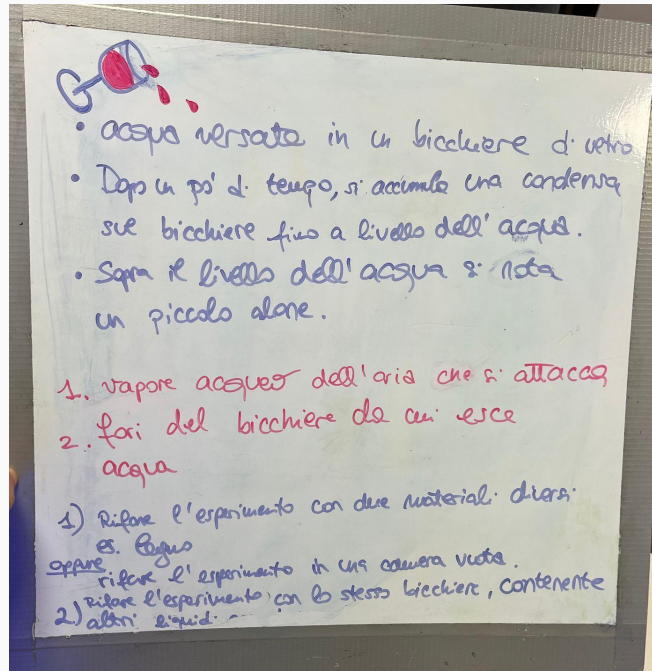 • acqua versata in un bicchiere di vetro
• Dopo un po' di tempo, si accumula una condensa
sul bicchiere fino a livello dell'acqua.
• Sopra il livello dell'acqua si nota
un piccolo alone.
1. vapore acqueo dell'aria che si attacca
2. fori del bicchiere da cui esce
acqua
1) Rifare l'esperimento con due materiali diversi
es. legno
oppure
rifare l'esperimento in una camera vuota.
2) Rifare l'esperimento con lo stesso bicchiere, contenente
altri liquidi